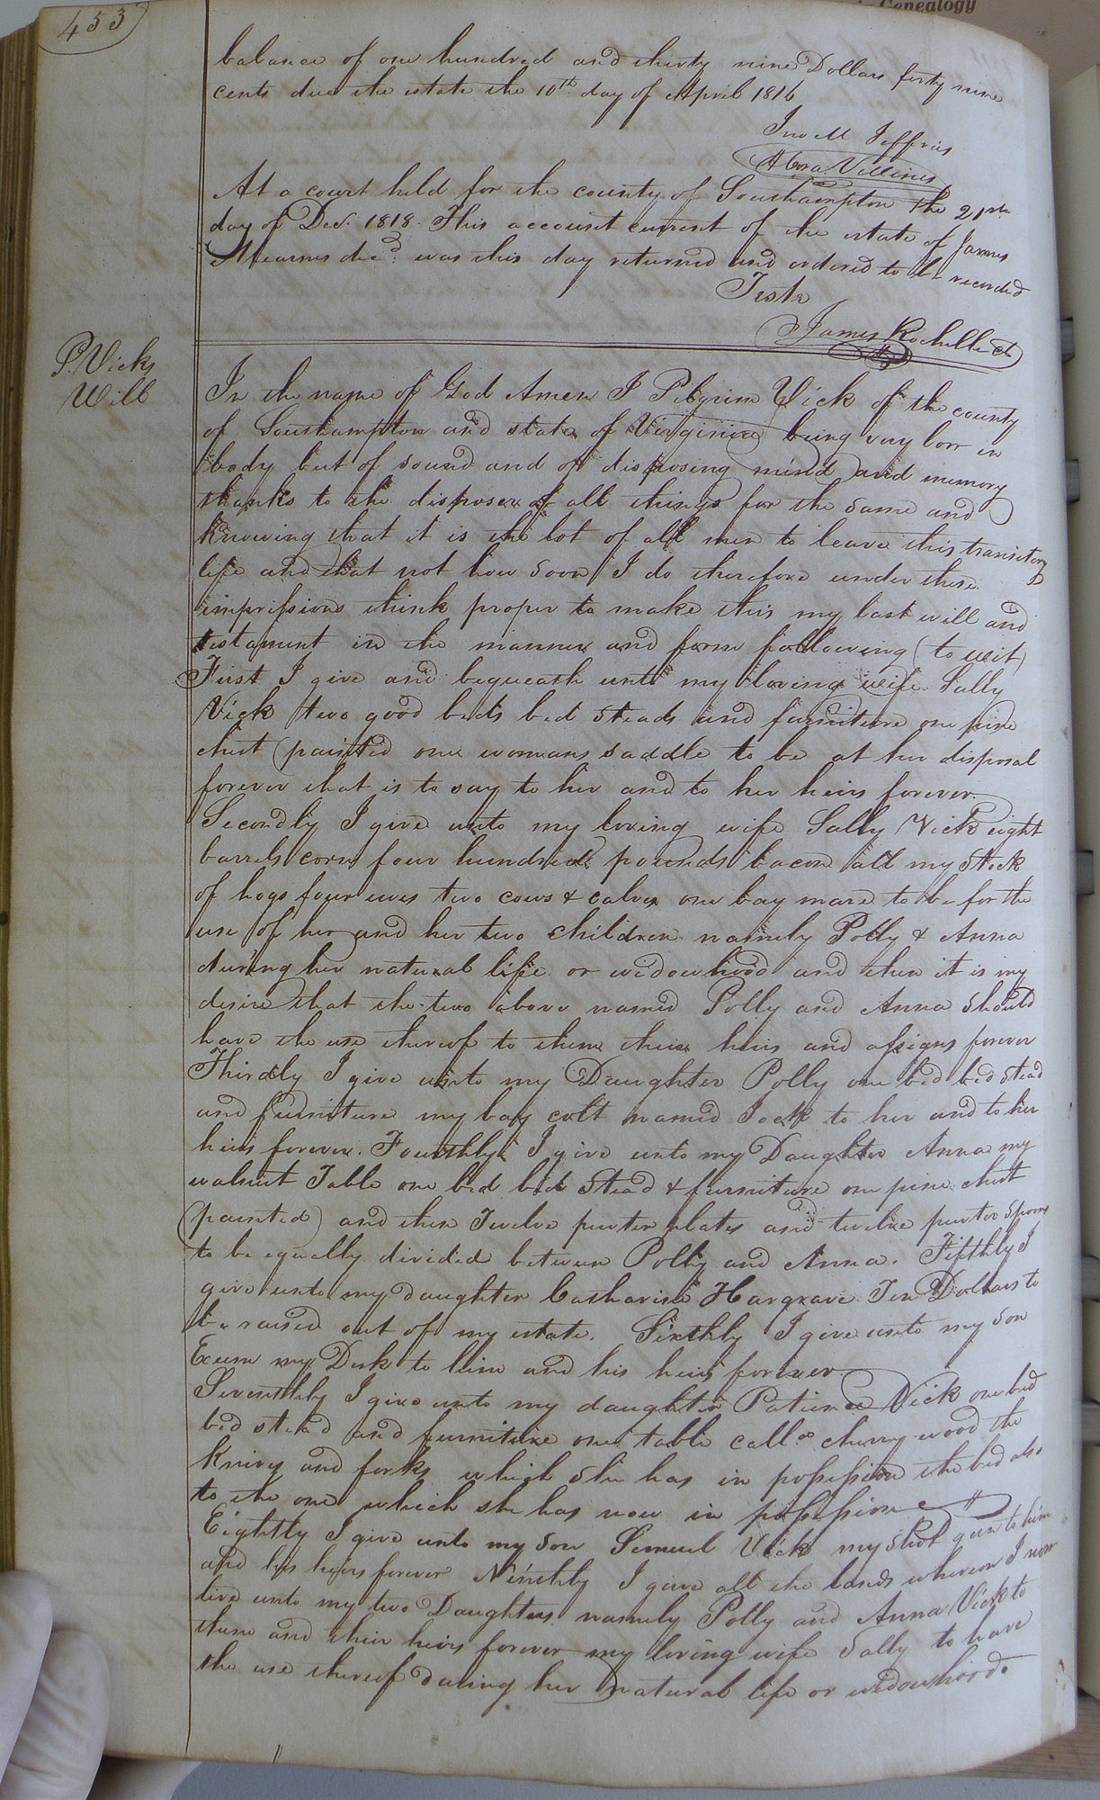 Genealogy
453
balance of one hundred and thirty nine Dollars forty nine
cents due the estate the 10th day of April 1816
Jno M Jeffries
At a court held for the county of Southampton the 21st
day of Dec. 1818. This account current of the estate of James
decd. was this day returned and ordered to be recorded
Teste
James Rochelle Ct
P. Vicks
Will
In the name of God Amen I Pilgrim Vick of the county
of Southampton and state of Virginia being very low in
body but of sound and of disposing mind and memory
thanks to the disposer of all things for the same and
knowing that it is the lot of all men to leave this transitory
life and that not how soon I do therefore under these
impressions think proper to make this my last will and
testament in the manner and form following (to wit)
First I give and bequeath unto my loving wife Sally
Vick two good beds bed steads and furniture one pine
chest (painted one womans saddle to be at her disposal
forever that is to say to her and to her heirs forever
Secondly I give unto my loving wife Sally Vick eight
barrels corn four hundred pounds bacon all my stock
of hogs four ewes two cows & calves one bay mare to be for the
use of her and her two children namely Polly & Anna
during her natural life or widowhood and then it is my
desire that the two above named Polly and Anna should
have the use thereof to them their heirs and assigns forever
Thirdly I give unto my Daughter Polly one bed bed stead
and furniture my bay colt named Jack to her and to her
heirs forever. Fourthly I give unto my Daughter Anna my
walnut Table one bed bed stead & furniture one pine chest
(painted) and then Twelve pewter plates and twelve pewter spoons
to be equally divided between Polly and Anna. Fifthly I
give unto my daughter Catharine Hargrave Ten Dollars to
be raised out of my estate. Sixthly I give unto my son
Exum my Desk to him and his heirs forever
Seventhly I give unto my daughter Patience Vick one bed
bed stead and furniture one table calld cherry wood the
knives and forks which she has in possession the bed also
to the one which she has now in possession
Eightly I give unto my son Lemuel Vick my shot gun to him
and his heirs forever Ninthly I give all the lands whereon I now
live unto my two Daughters namely Polly and Anna Vick to
them and their heirs forever my loving wife Sally to have
the use thereof during her natural life or widowhood.